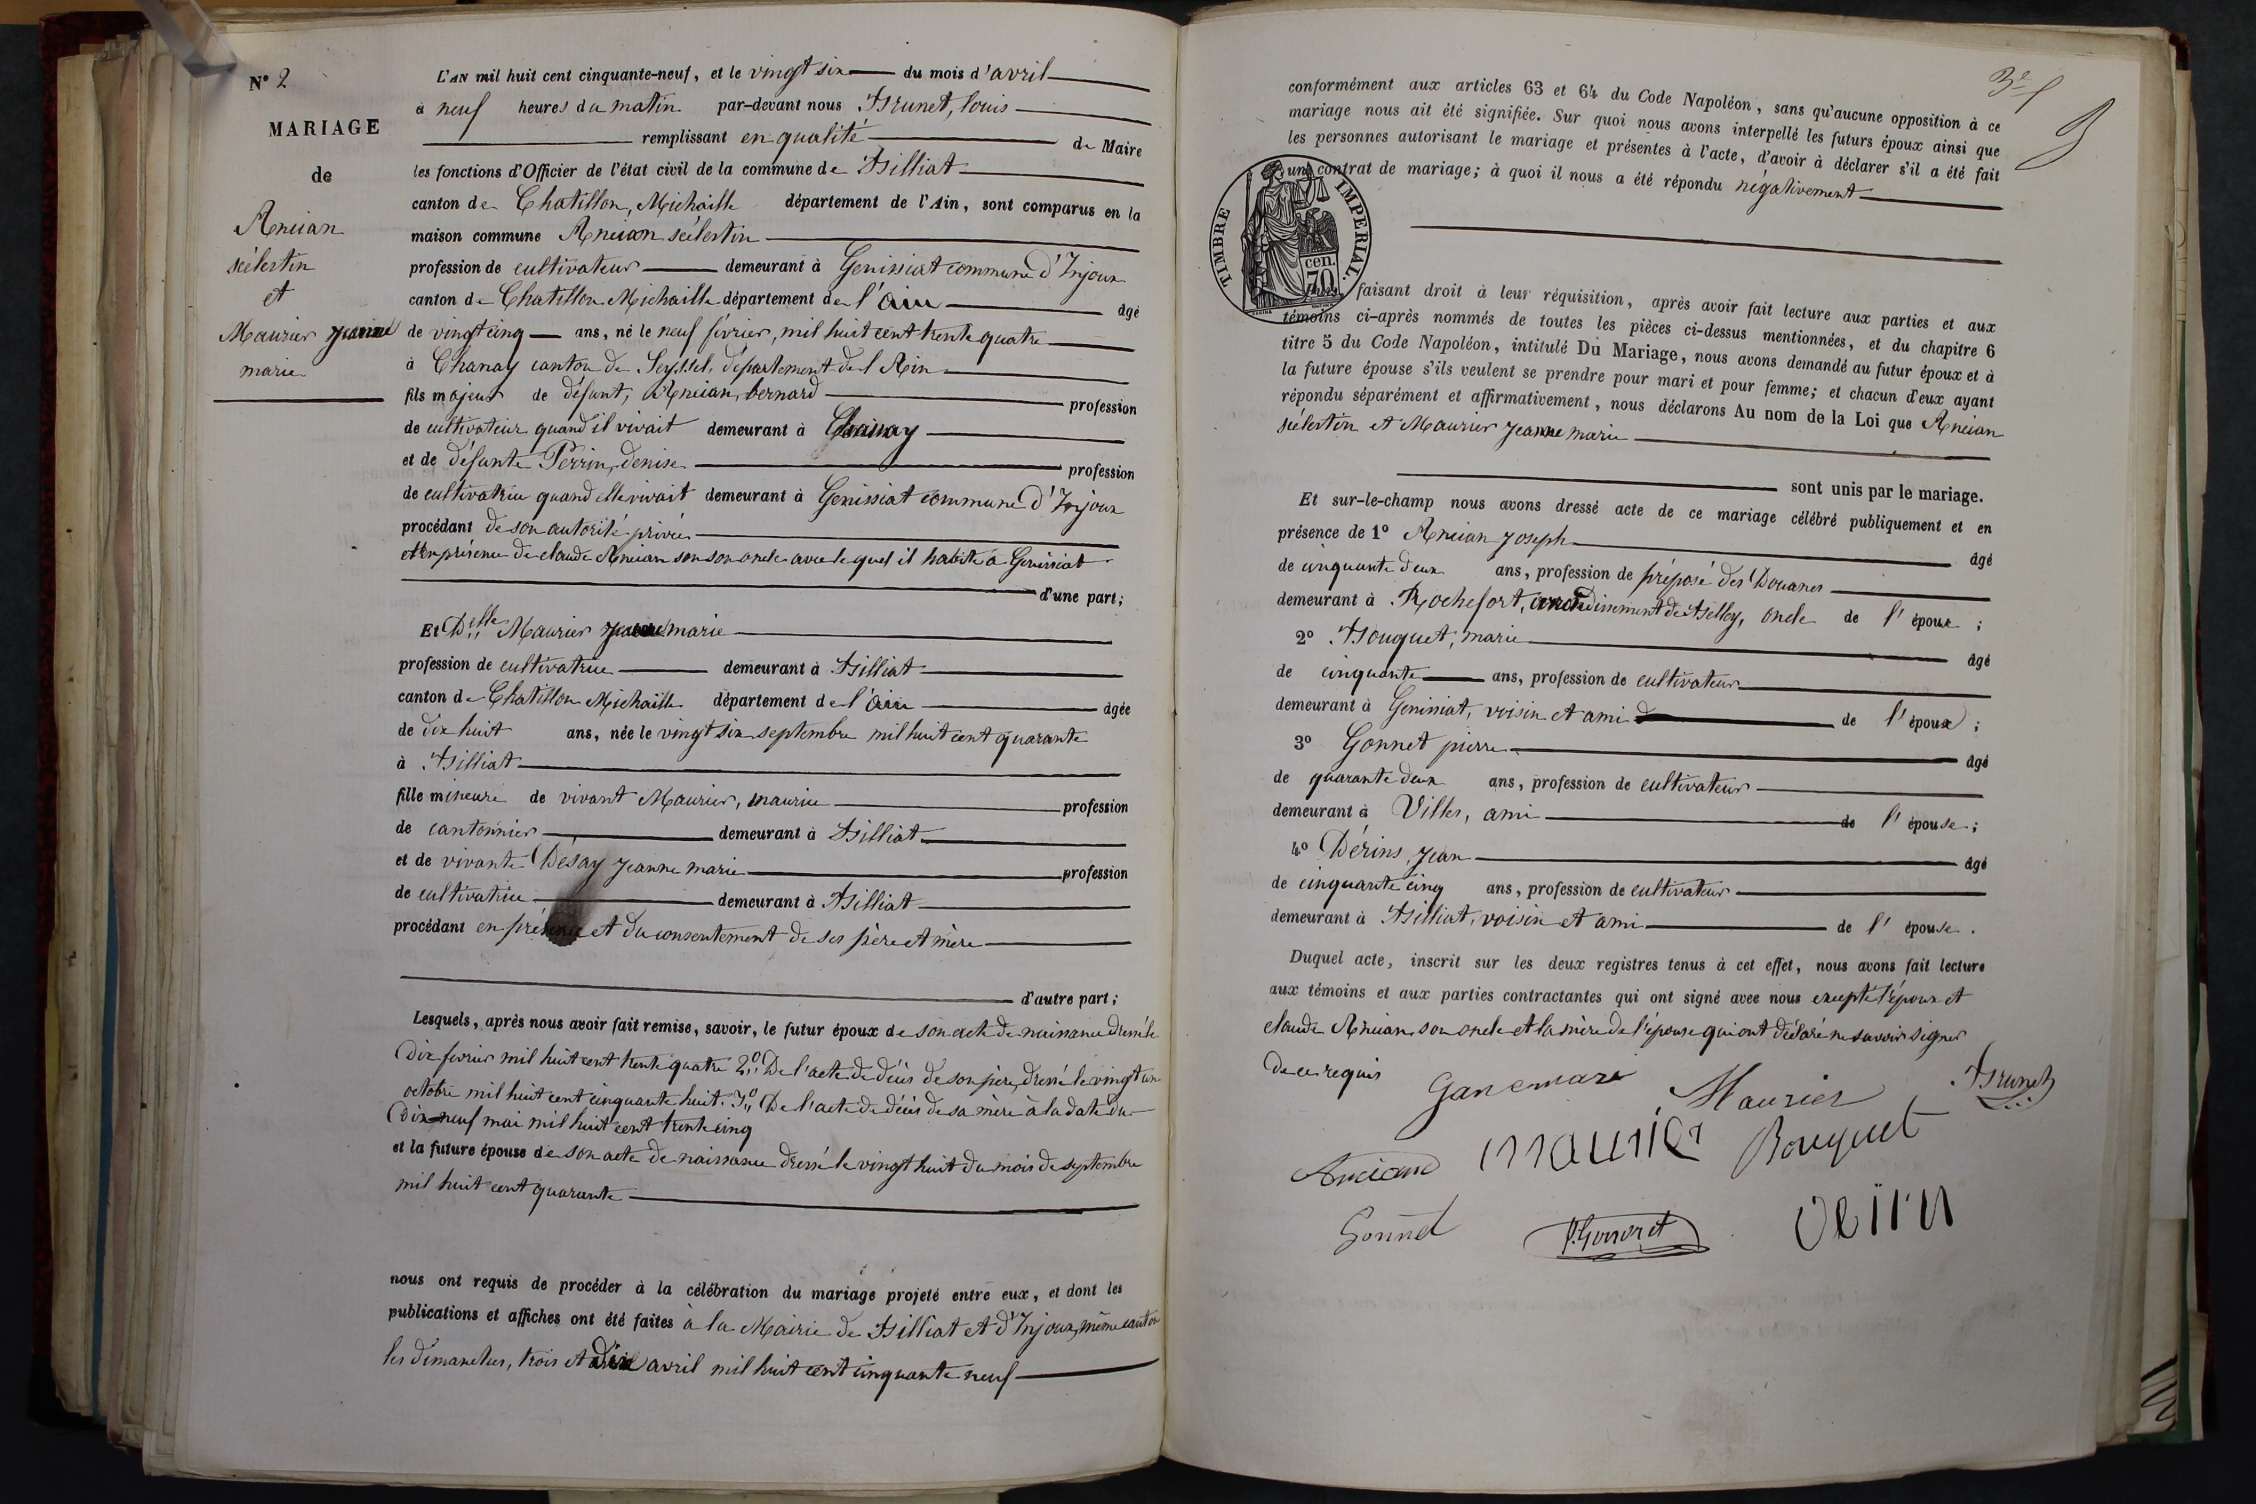 N° 2
MARIAGE
de
Ancian
Sélestin
et
Maurier Jeanne
marie
L'AN mil huit cent cinquante-neuf, et le vingt six du mois d'avril
à neuf heures du matin par-devant nous Brunet, Louis
remplissant en qualité de Maire
les fonctions d'Officier de l'état civil de la commune de Billiat
canton de Chatillon, Michaille département de l'Ain, sont comparus en la
maison commune Ancian Sélestin
profession de cultivateur demeurant à Genissiat commune d'Injoux
canton de Chatillon Michaille département de l'ain âgé
de vingt cinq ans, né le neuf février, mil huit cent trente quatre
à Chanay canton de Seyssel, département de l'Ain
fils majeur de défunt, Ancian, bernard profession
de cultivateur quand il vivait demeurant à Chanay
et de défunte Perrin, denise profession
de cultivatrice quand elle vivait demeurant à Genissiat commune d'Injoux
procédant de son autorité privée
et en présence de claude Ancian son son oncle avec lequel il habite à Genissiat
d'une part;
Et Delle Maurier Jeanne marie
profession de cultivatrice demeurant à Billiat
canton de Chatillon Michaille département de l'ain âgée
de dix huit ans, née le vingt six septembre mil huit cent quarante
à Billiat
fille mineure de vivant Maurier, maurice profession
de cantonnier demeurant à Billiat
et de vivante Désay Jeanne marie profession
de cultivatrice demeurant à Billiat
procédant en présence et du consentement de ses père et mère
d'autre part;
Lesquels, après nous avoir fait remise, savoir, le futur époux de son acte de naissance dressé le
dix fevrier mil huit cent trente quatre 2° De l'acte de décès de son père, dressé le vingt un
octobre mil huit cent cinquante huit. 3° De l'acte de décès de sa mère à la date du
dix neuf mai mil huit cent trente cinq
et la future épouse de son acte de naissance dressé le vingt huit du mois de septembre
mil huit cent quarante
nous ont requis de procéder à la célébration du mariage projeté entre eux, et dont les
publications et affiches ont été faites à la Mairie de Billiat et d'Injoux, même canton
les dimanches, trois et dix avril mil huit cent cinquante neuf
conformément aux articles 63 et 64 du Code Napoléon, sans qu'aucune opposition à ce
mariage nous ait été signifiée. Sur quoi nous avons interpellé les futurs époux ainsi que
les personnes autorisant le mariage et présentes à l'acte, d'avoir à déclarer s'il a été fait
un contrat de mariage; à quoi il nous a été répondu négativement
TIMBRE IMPERIAL.
70 cen.
faisant droit à leur réquisition, après avoir fait lecture aux parties et aux
témoins ci-après nommés de toutes les pièces ci-dessus mentionnées, et du chapitre 6
titre 5 du Code Napoléon, intitulé Du Mariage, nous avons demandé au futur époux et à
la future épouse s'ils veulent se prendre pour mari et pour femme; et chacun d'eux ayant
répondu séparément et affirmativement, nous déclarons Au nom de la Loi que Ancian
Sélestin et Maurier Jeanne marie
sont unis par le mariage.
Et sur-le-champ nous avons dressé acte de ce mariage célébré publiquement et en
présence de 1° Ancian Joseph âgé
de cinquante deux ans, profession de préposé des Douanes
demeurant à Rochefort, arrondissement de Belley, oncle de l'époux;
2° Bouquet, marie âgé
de cinquante ans, profession de cultivateur
demeurant à Genissiat, voisin et ami de l'époux;
3° Gonnet pierre âgé
de quarante deux ans, profession de cultivateur
demeurant à Villes, ami de l'épouse;
4° Dérins, Jean âgé
de cinquante cinq ans, profession de cultivateur
demeurant à Billiat, voisin et ami de l'épouse.
Duquel acte, inscrit sur les deux registres tenus à cet effet, nous avons fait lecture
aux témoins et aux parties contractantes qui ont signé avec nous excepté l'époux et
claude Ancian son oncle et la mère de l'épouse qui ont déclaré ne savoir signer
de ce requis
Maurier Brunet
Anciand maurier Bouquet
Gonnet